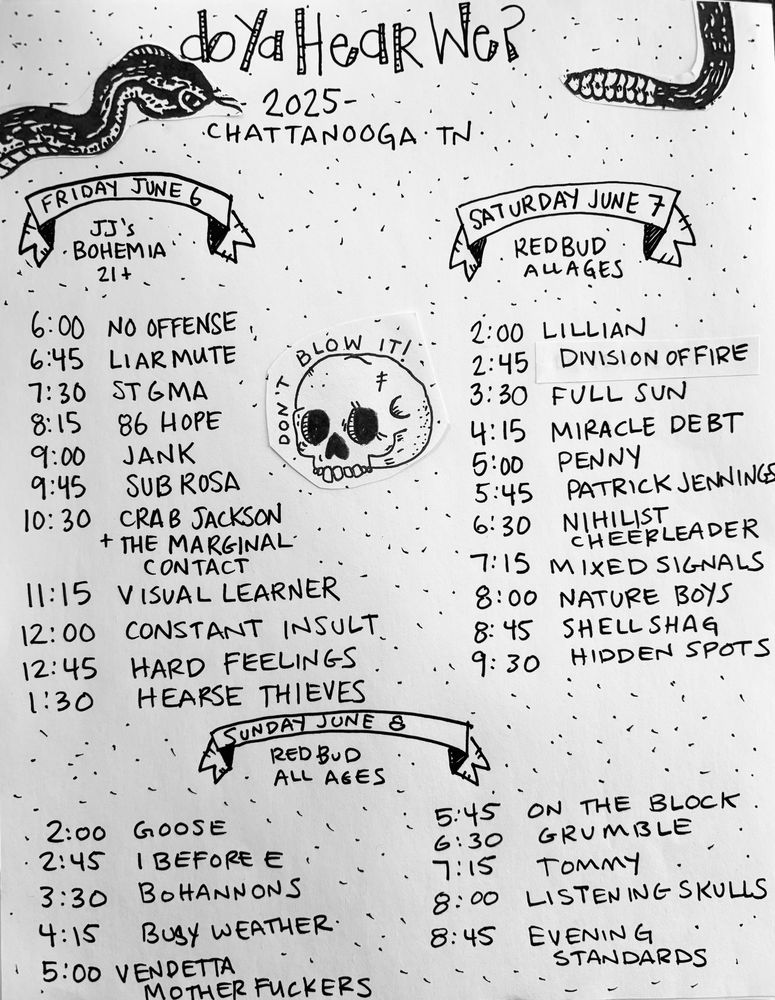 doYaHearWe?
2025-
CHATTANOOGA · TN ·
FRIDAY JUNE 6
JJ's
BOHEMIA
21+
6:00 NO OFFENSE
6:45 LIARMUTE
7:30 STGMA
8:15 86 HOPE
9:00 JANK
9:45 SUB ROSA
10:30 CRAB JACKSON
+ THE MARGINAL
CONTACT
11:15 VISUAL LEARNER
12:00 CONSTANT INSULT
12:45 HARD FEELINGS
1:30 HEARSE THIEVES
DON'T BLOW IT!
SATURDAY JUNE 7
REDBUD
ALL AGES
2:00 LILLIAN
2:45 DIVISION OF FIRE
3:30 FULL SUN
4:15 MIRACLE DEBT
5:00 PENNY
5:45 PATRICK JENNINGS
6:30 NIHILIST
CHEERLEADER
7:15 MIXED SIGNALS
8:00 NATURE BOYS
8:45 SHELLSHAG
9:30 HIDDEN SPOTS
SUNDAY JUNE 8
REDBUD
ALL AGES
2:00 GOOSE
2:45 I BEFORE E
3:30 BOHANNONS
4:15 BUSY WEATHER
5:00 VENDETTA
MOTHER FUCKERS
5:45 ON THE BLOCK
6:30 GRUMBLE
7:15 TOMMY
8:00 LISTENING SKULLS
8:45 EVENING
STANDARDS